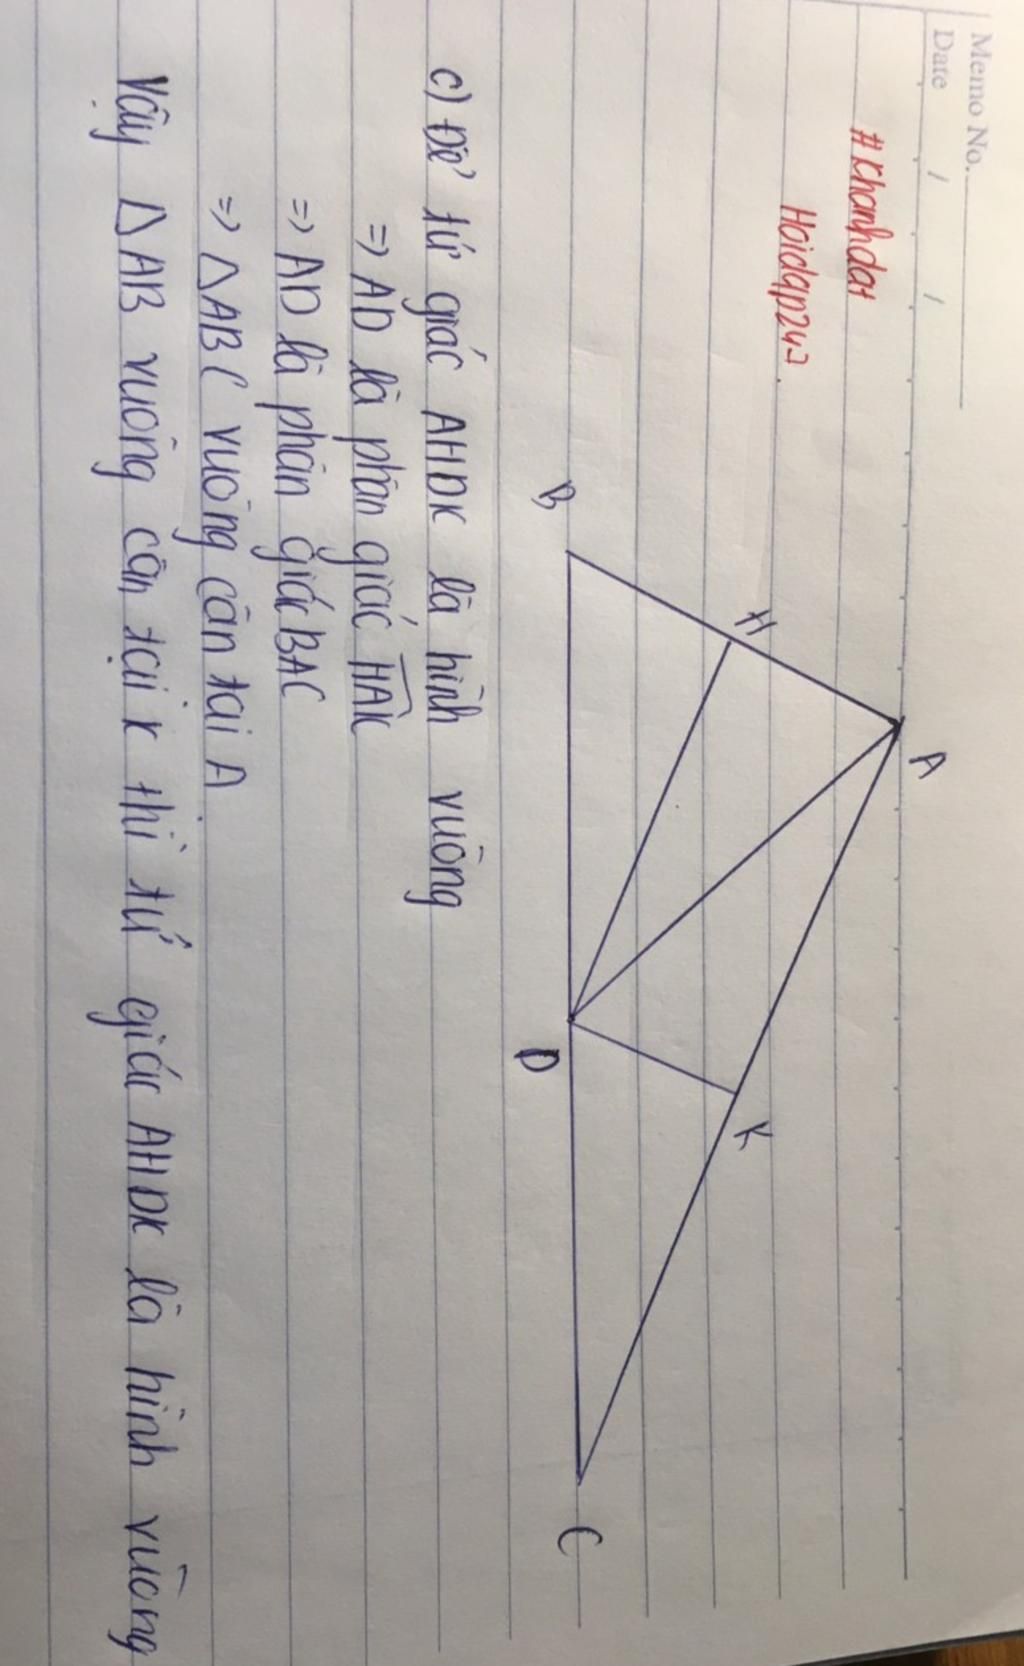 Memo No.
Date / /
#Khanhdat
Hoidap247
A
H
K
B
D
C
c) Để tứ giác AHDK là hình vuông
=> AD là phân giác HAK
=> AD là phân giác BAC
=> ΔABC vuông cân tại A
Vậy ΔAB vuông cân tại K thì tứ giác AHDK là hình vuông